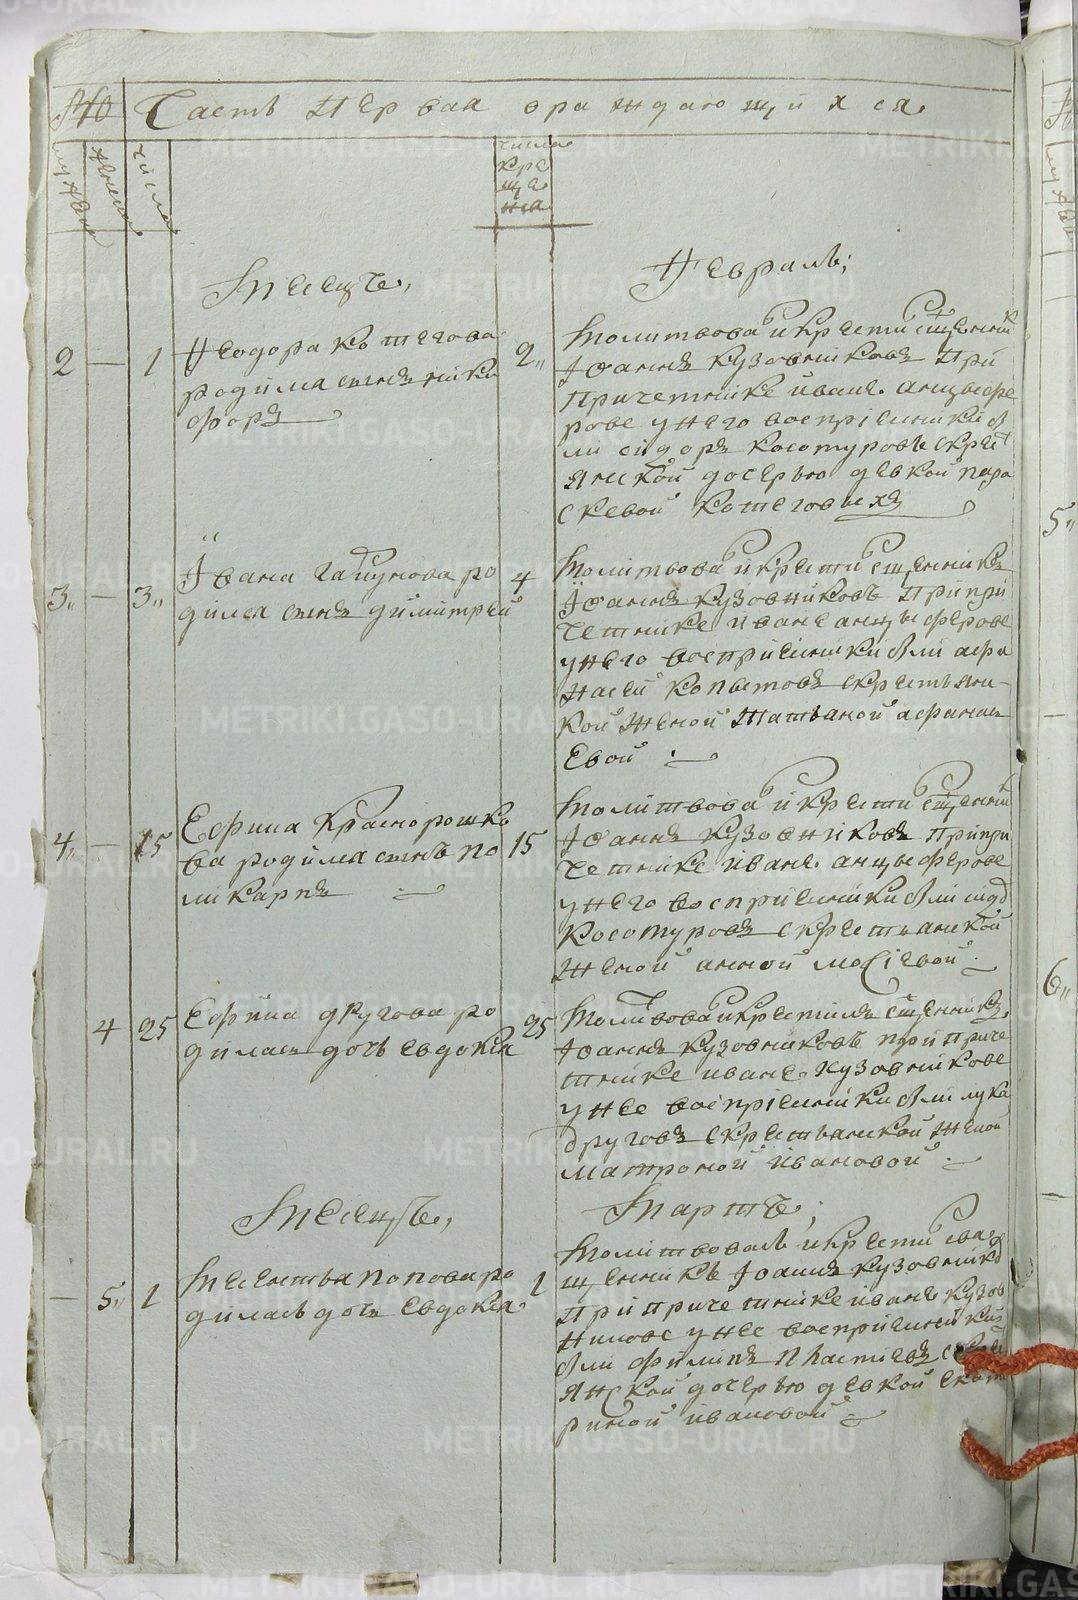 Часть Первая ораждающихся
мужска
женска
числа
числа
кре
ще
ния
Месецъ, Февраль;
2 — 1
Феодора Котегова
родился сынъ ники
форъ
2
молитвова и крести сщенник
Іоаннъ Кузовниковъ При
Причетнике иване анцыфе
рове у него воспріемники б
ли сидоръ косотуровъ скрест
янской дочерью девкой пара
скевой Котеговыхъ
3 — 3
Івана гайдукова ро
дился сынъ димитрей
4
молитвова и крести сщенникъ
Іоаннъ Кузовниковъ При при
четнике иване анцыферове
у него воспріемники были афа
насей Копытовъ скрестьянс
кой женой Татьяной афанась
евой
4 — 15
Ефима Краснорошко
ва родился сынъ по
ликарпъ
15
молитвова и крести сщенник
Іоаннъ Кузовниковъ При при
четнике иване анцыферове
у него воспріемники были сид
Косотуровъ скрестьянской
женой анной мосіевой
4 25
Ефима другова ро
дилась дочь евдокия
25
молитвова и крестилъ сщенникъ
Іоаннъ Кузовниковъ при приче
тнике иване Кузовникове
у нее воспріемники были лука
Друговъ скрестьянской женой
матроной ивановой
Месецъ, Мартъ;
— 5 1
попова ро
дилась дочь Евдокея
1
молитвовалъ и крести свя
щенникъ Іоаннъ Кузовнико
При причетнике иванъ кузов
никове у нее воспріемники
были филипъ
янской дочерью девкой екате
риной ивановой
5
6
METRIKI.GASO-URAL.RU